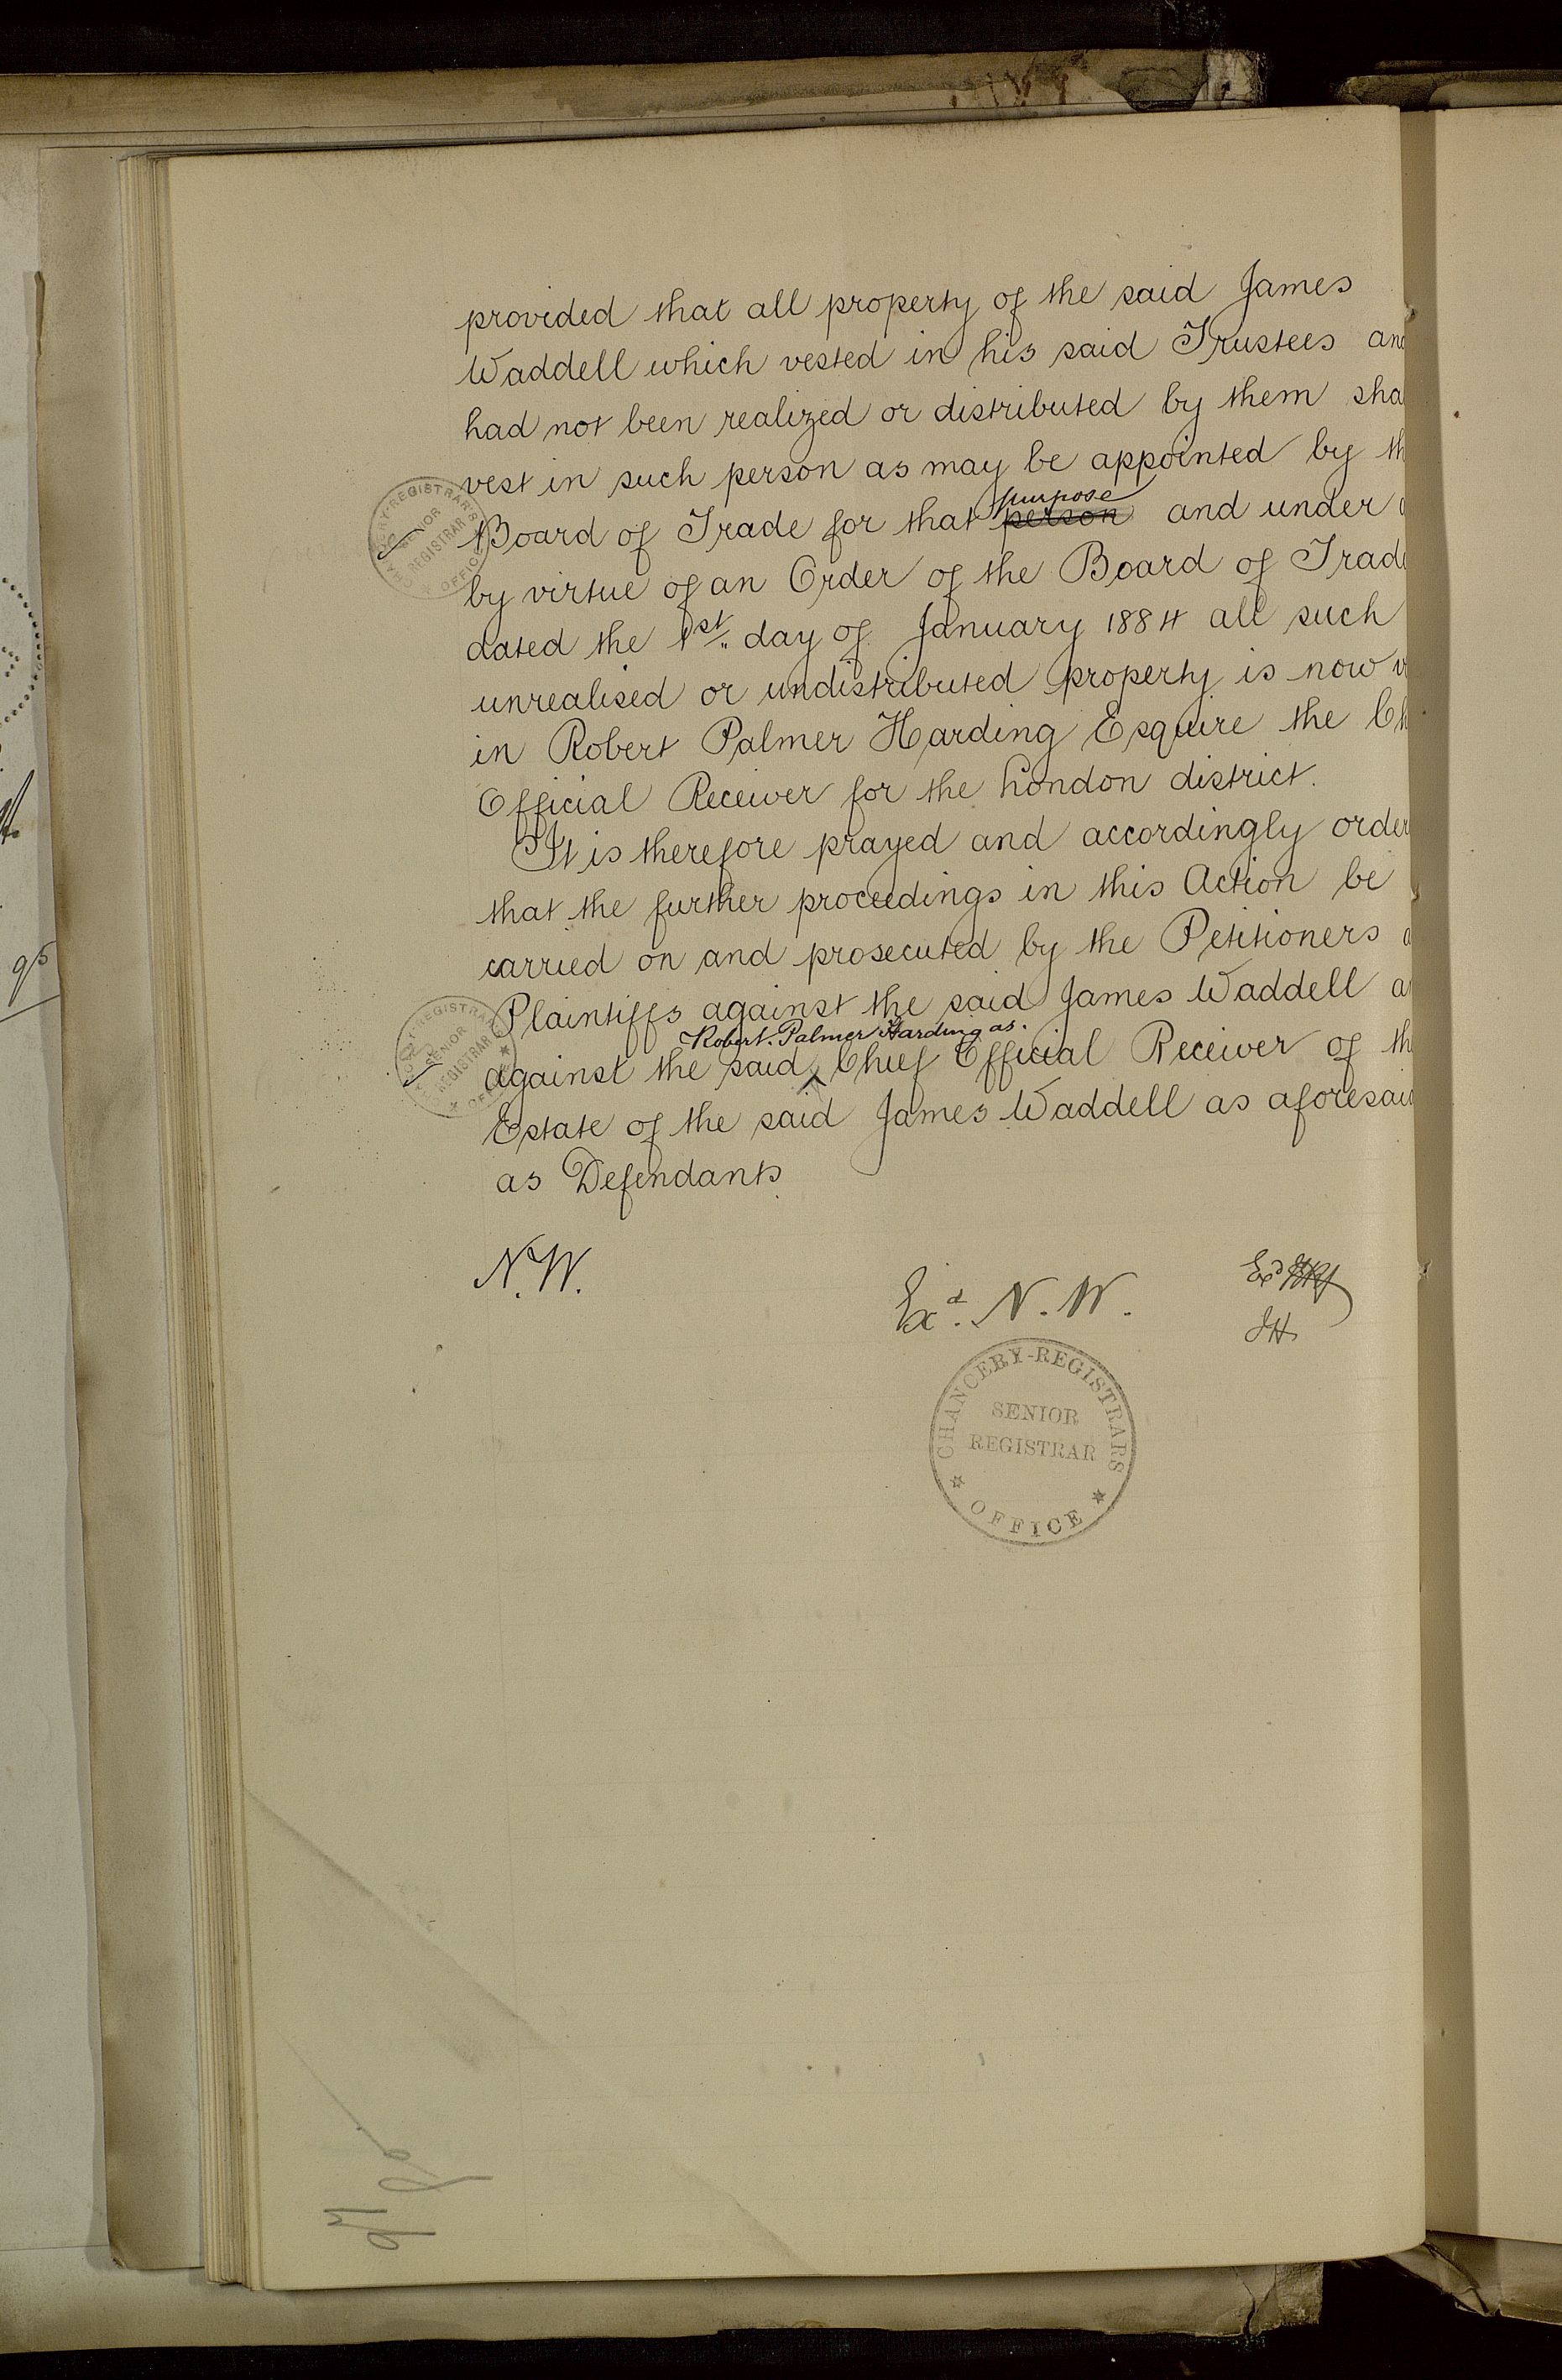 provided that all property of the said James
Waddell which vested in his said Trustees and
had not been realized or distributed by them sha
vest in such person as may be appointed by th
purpose
Board of Trade for that person and under
by virtue of an Order of the Board of Trade
dated the 1st day of January 1884 all such
unrealised or undistributed property is now v
in Robert Palmer Harding Esquire the Ch
Official Receiver for the London district.
It is therefore prayed and accordingly order
that the further proceedings in this Action be
carried on and prosecuted by the Petitioners a
Plaintiffs against the said James Waddell a
Robert Palmer Harding as
against the said Chief Official Receiver of th
Estate of the said James Waddell as aforesaid
as Defendants
N.W.
Exd. N. W.
Exd
JH
CHANCERY-REGISTRARS
SENIOR
REGISTRAR
OFFICE
CHANCERY-REGISTRAR'S
SENIOR
REGISTRAR
OFFICE
REGISTRAR
SENIOR
REGISTRAR